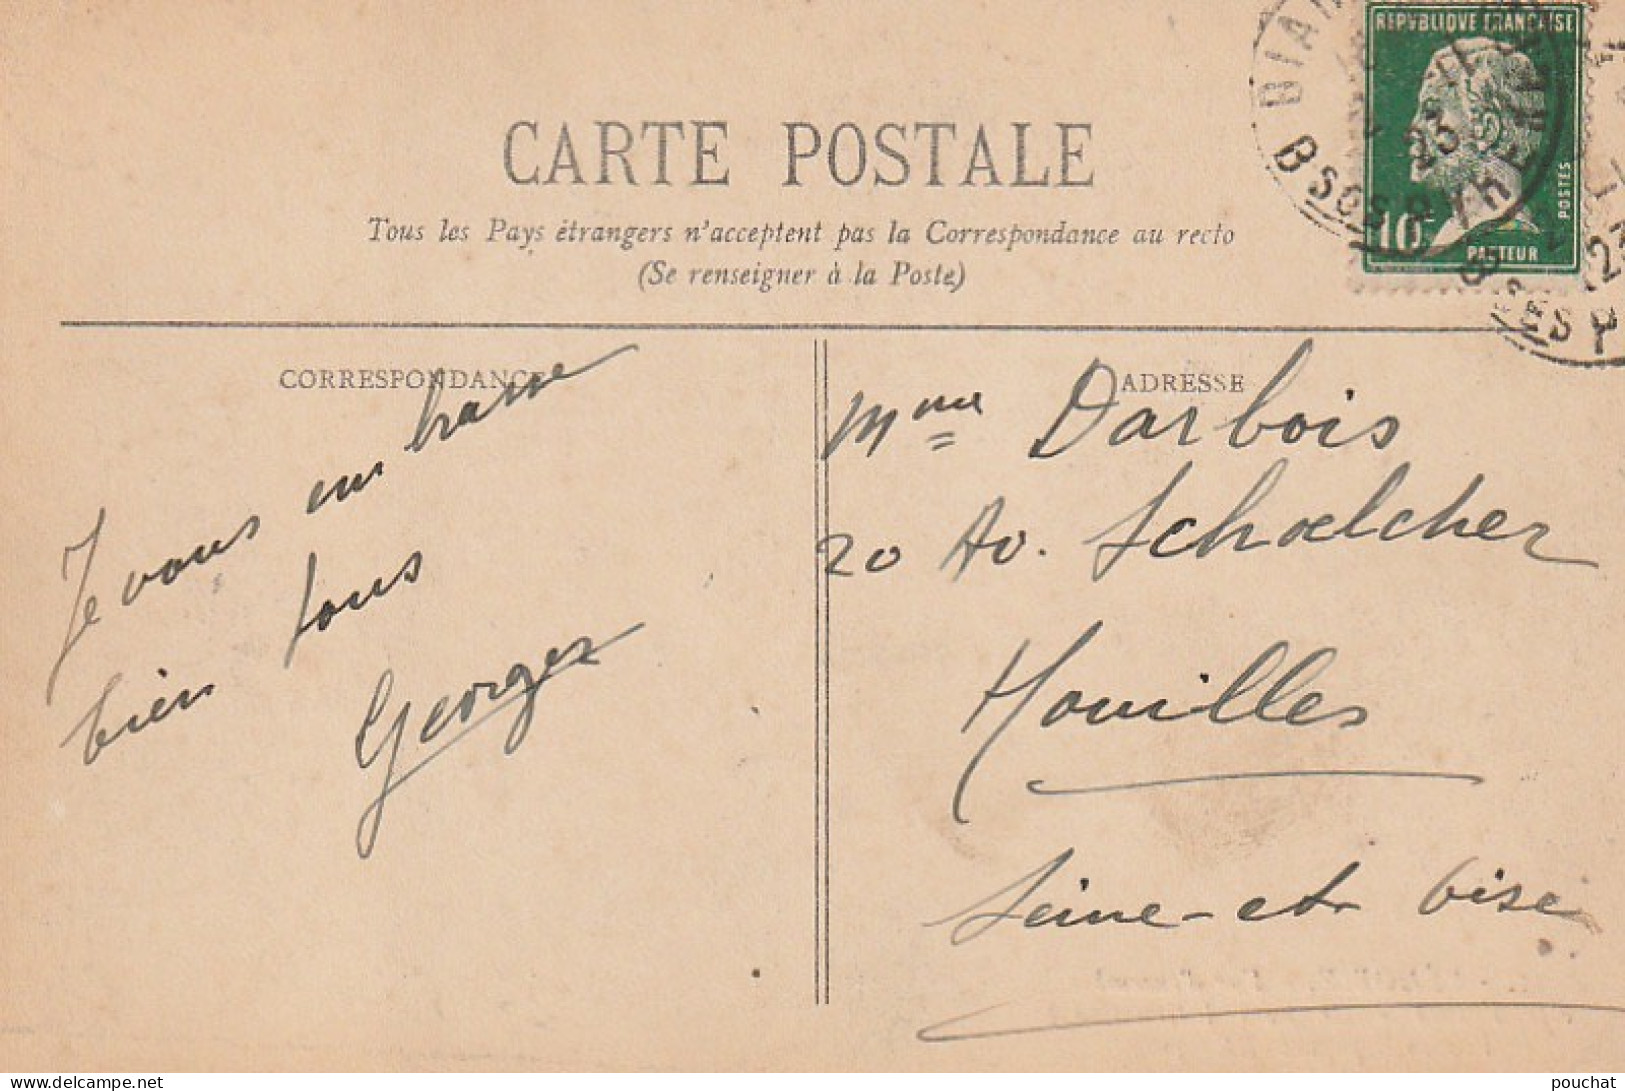 CARTE POSTALE
Tous les Pays étrangers n'acceptent pas la Correspondance au recto
(Se renseigner à la Poste)
REPVBLIQVE FRANÇAISE
POSTES
10c
PASTEUR
CORRESPONDANCE
Je vous embrasse
bien tous
Georges
ADRESSE
Mme Darbois
20 Av. Schœlcher
Houilles
Seine-et-Oise
www.delcampe.net
pouchat